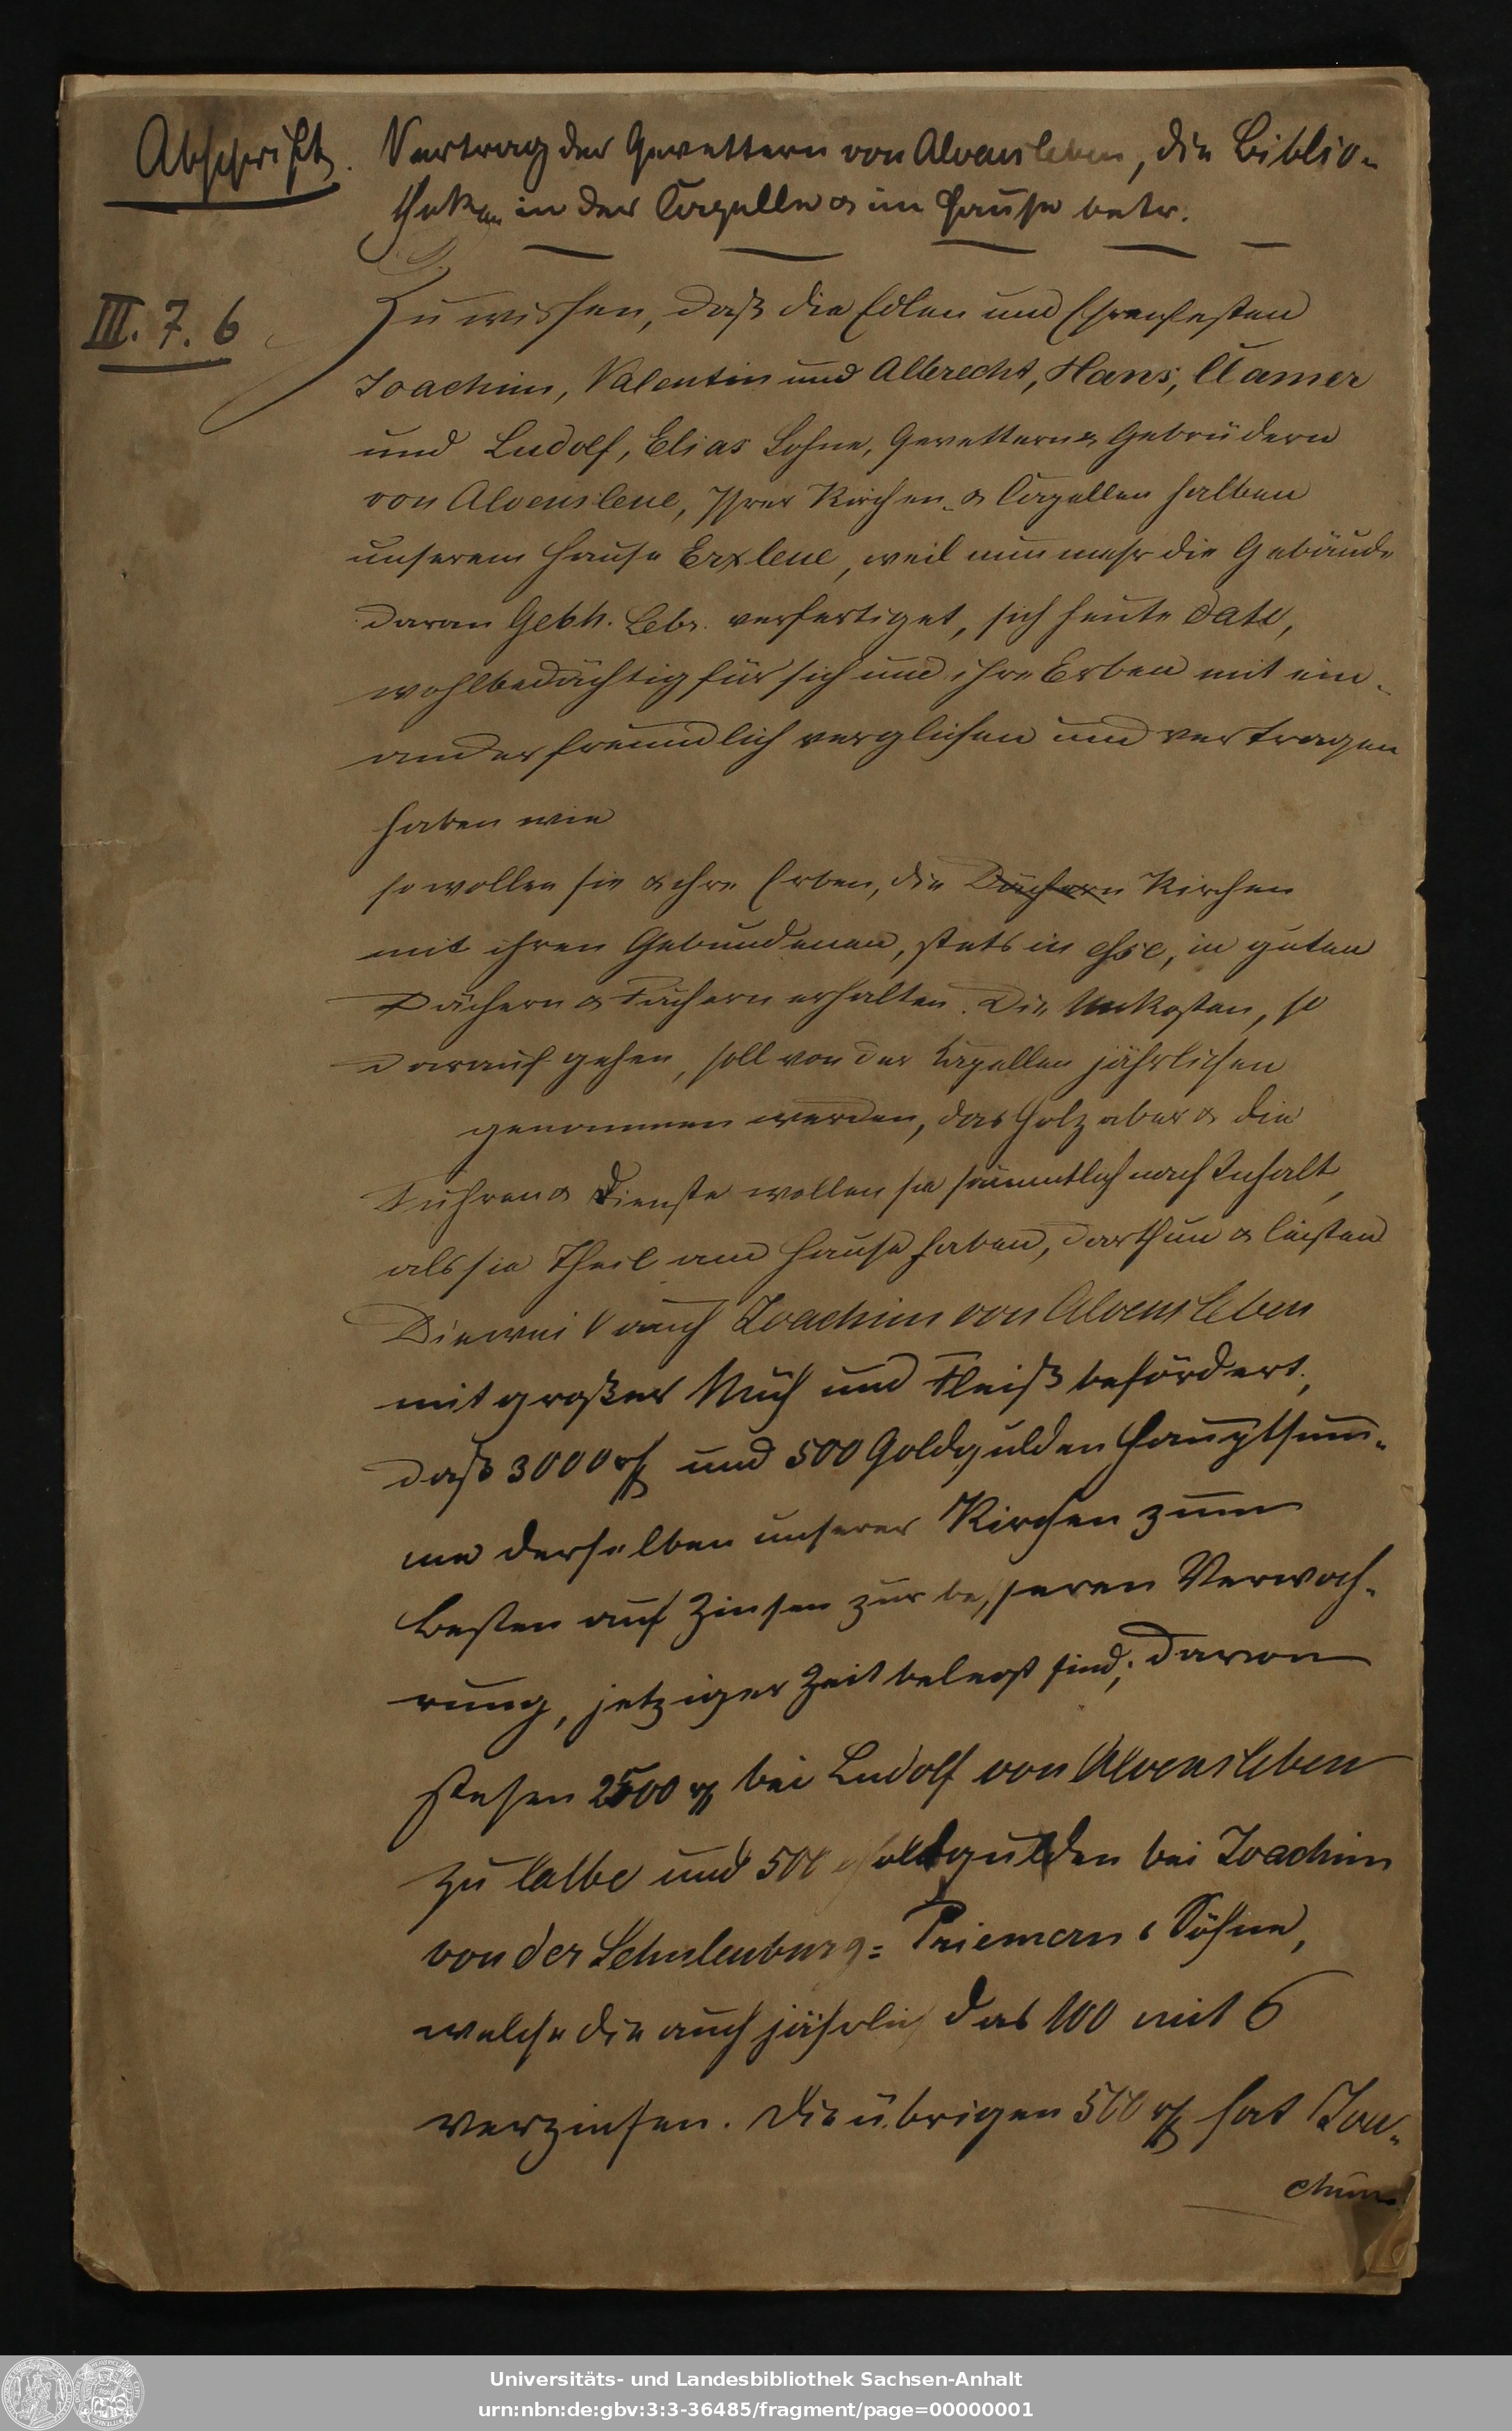 Abschrift.
Vertrag der Gevettern von Alvensleben, die Biblio-
theken in der Capelle & im Hause betr.
III. 7. 6
Zu wissen, daß die Edlen und Ehrenfesten
Joachim, Valentin und Albrecht, Hans, Clamer
und Ludolf, Elias Sohne, Gevettern & Gebrüdern
von Alvensleue, Ihrer Kirchen- & Capellen halben
unserem Hause Erxleue, weil nunmehr die Gebäude
daran Gebh. Lebr. verfertiget, sich heute dato,
wohlbedächtig für sich und ihre Erben mit ein-
ander freundlich verglichen und vertragen
haben wie
so wollen sie & ihre Erben, die Dächern Kirchen
mit ihren Gebundenen, stets in esse, in guten
Dächern & Fächern erhalten. Die Unkosten, so
darauf gehen, soll von der Capellen jährlichen
genommen werden, das Holz aber & die
Fuhren & Dienste wollen sie sämmtlich nach Inhalt,
als sie Theil am Hause haben, darthun & leisten
Dieweil auch Joachim von Alvensleben
mit großer Müh und Fleiß befördert,
daß 3000 rf und 500 Goldgulden Hauptsum-
me derselben unserer Kirchen zum
Besten auf Zinsen zur besseren Verwah-
rung, jetziger Zeit belegt sind; davon
stehen 2500 rf bei Ludolf von Alvensleben
zu Calbe und 500 Goldgulden bei Joachim
von der Schulenburg= Priemern Söhne,
welche die auch jährlich das 100 mit 6
verzinsen. Die übrigen 500 rf hat Joa-
chim
Universitäts- und Landesbibliothek Sachsen-Anhalt
urn:nbn:de:gbv:3:3-36485/fragment/page=00000001